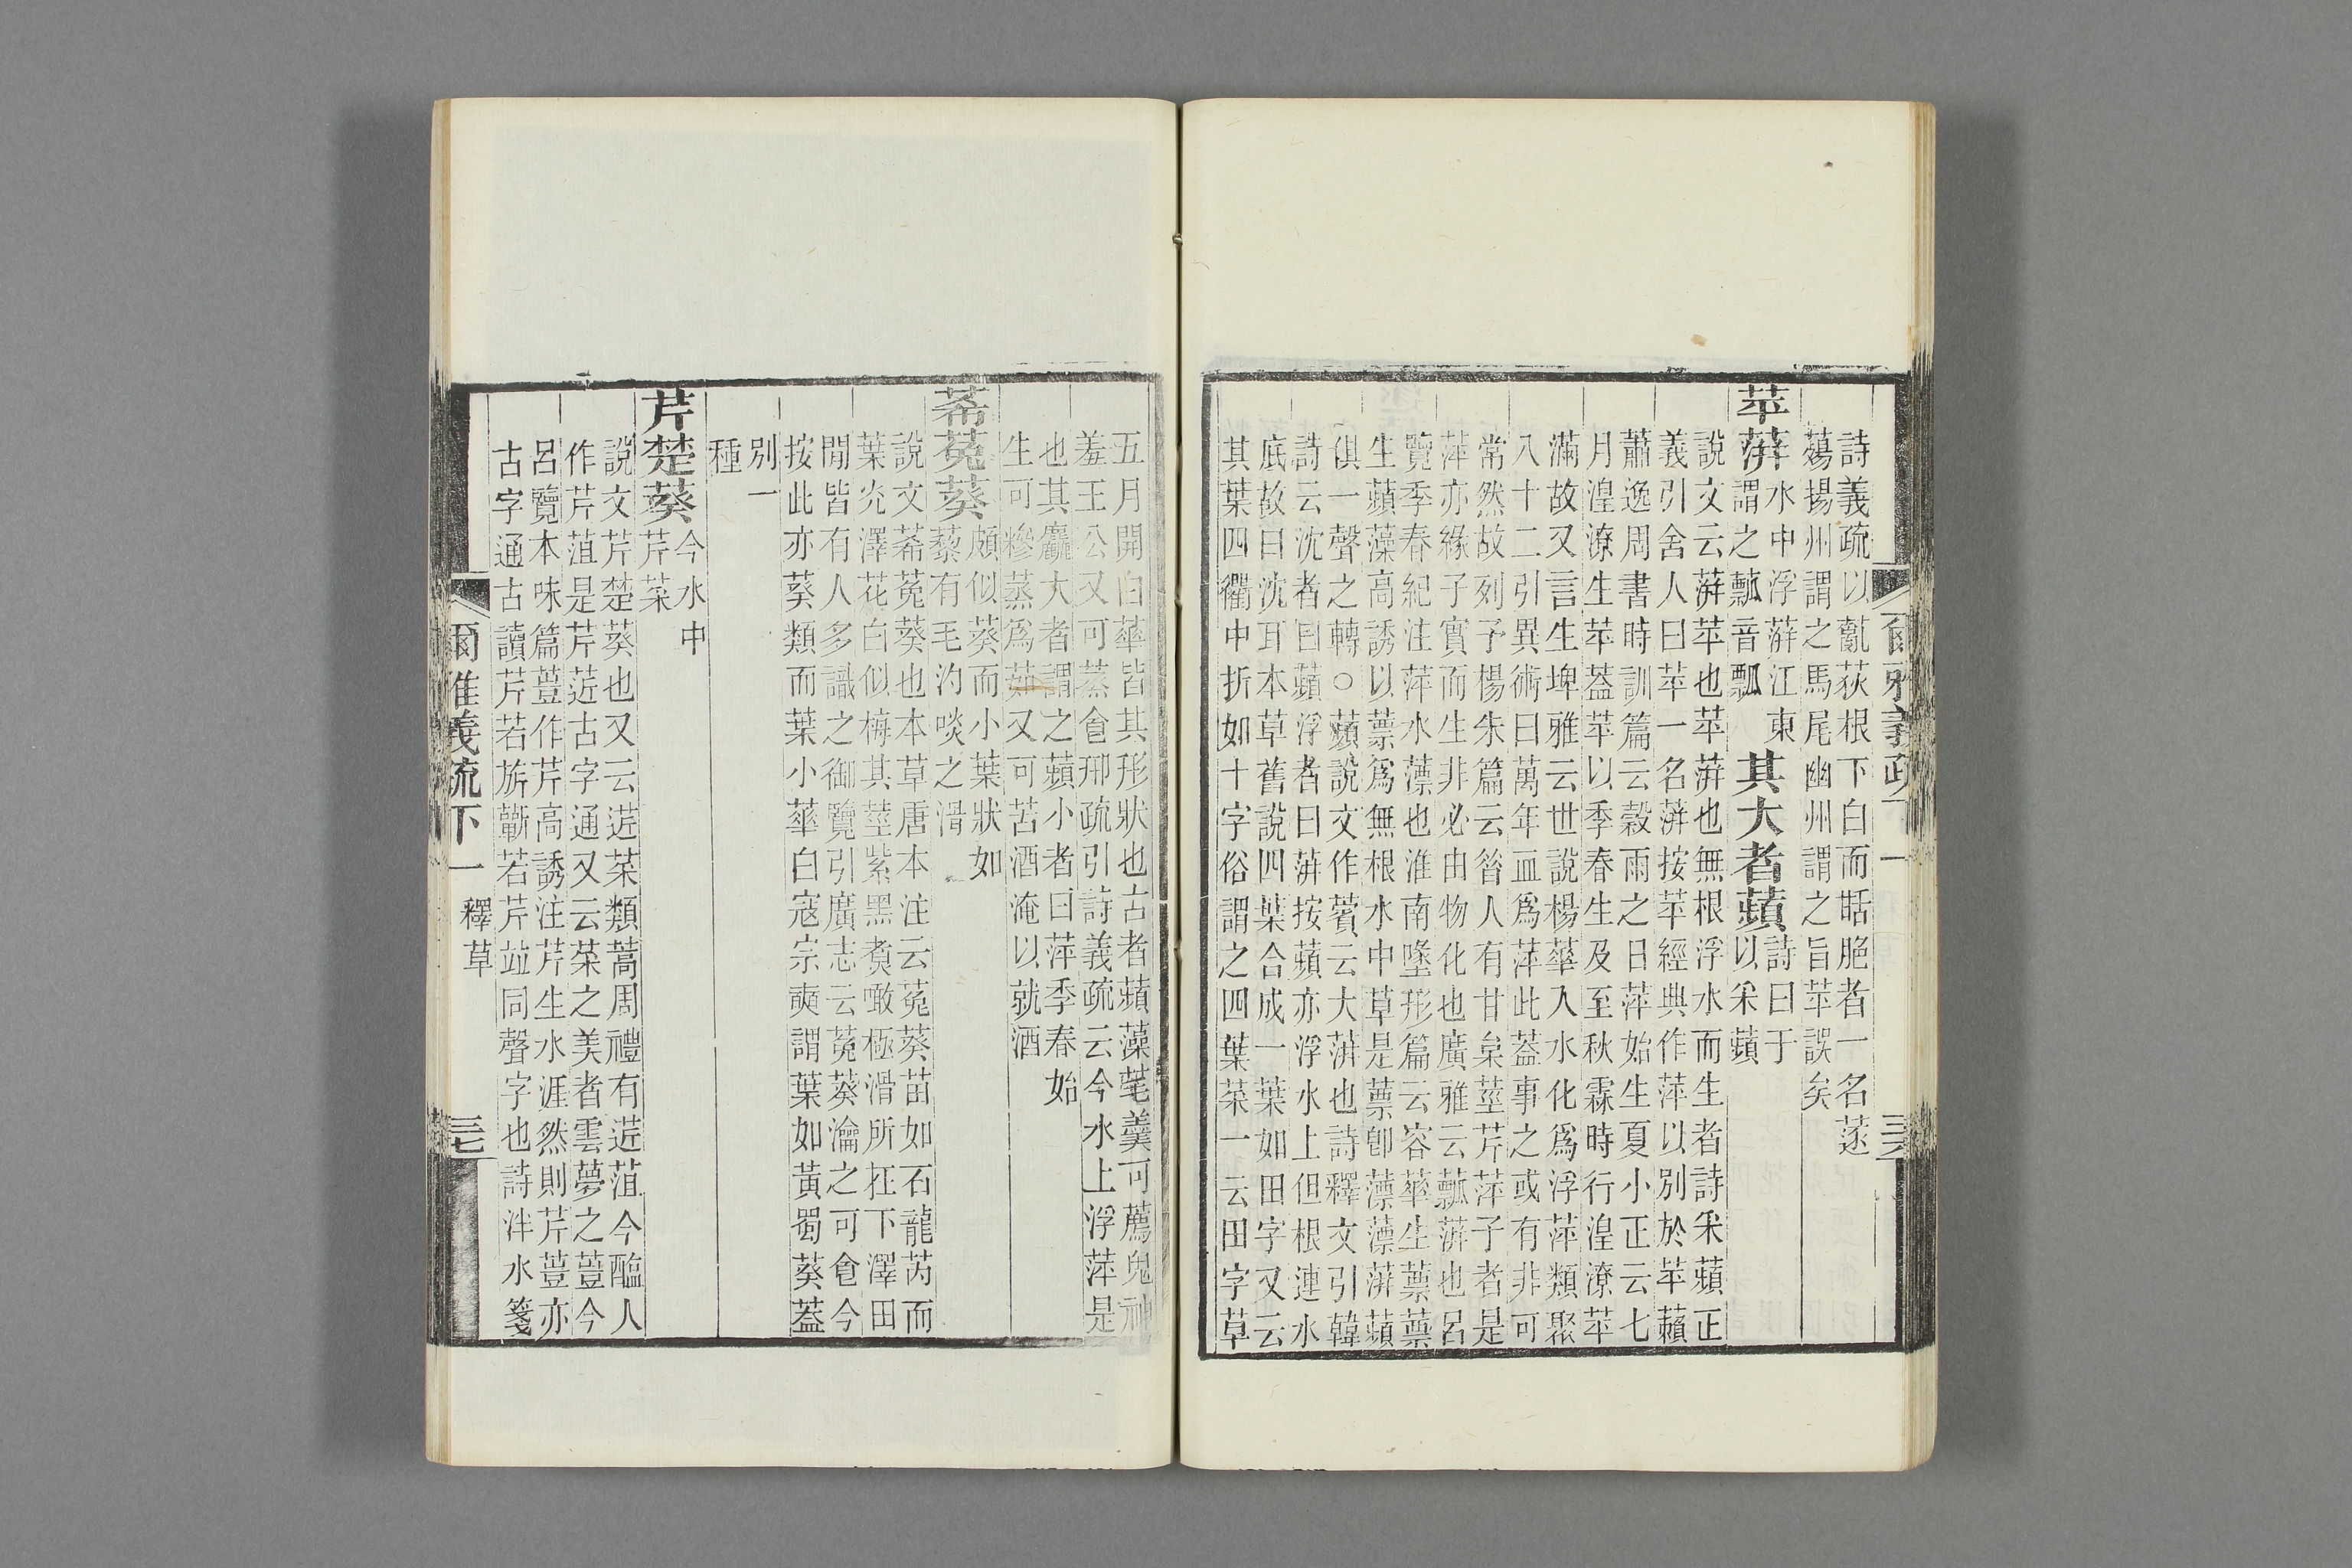 詩義疏以蓫荻根下白而甛脆者一名蓫
薚揚州謂之馬尾幽州謂之旨苹誤矣
苹蓱水中浮蓱江東謂之薸音瓢其大者蘋詩曰于以釆蘋
說文云蓱苹也苹蓱也無根浮水而生者詩釆蘋正
義引舍人曰苹一名蓱按苹經典作萍以別於苹藾
蕭逸周書時訓篇云穀雨之日萍始生夏小正云七
月湟潦生苹葢苹以季春生及至秋霖時行湟潦苹
滿故又言生埤雅云世說楊華入水化爲浮萍類聚
八十二引異術曰萬年血爲萍此葢事之或有非可
常然故列子楊朱篇云昝人有甘枲莖芹萍子者是
萍亦緣子實而生非必由物化也廣雅云薸蓱也呂
覽季春紀注萍水薸也淮南墬形篇云容華生蔈蔈
生蘋藻高誘以蔈爲無根水中草是蔈卽薸薸蓱蘋
俱一聲之轉○蘋說文作薲云大蓱也詩釋文引韓
詩云沈者曰蘋浮者曰蓱按蘋亦浮水上但根連水
底故曰沈耳本草舊說四葉合成一葉如田字又云
其葉四衢中折如十字俗謂之四葉菜一云田字草
爾雅義疏下一
三六
五月開白華皆其形狀也古者蘋藻芼羹可薦鬼神
羞王公又可蒸食邢疏引詩義疏云今水上浮萍是
也其麤大者謂之蘋小者曰萍季春始
生可糝蒸爲茹又可苦酒淹以就酒
莃菟葵頗似葵而小葉狀如藜有毛汋啖之滑
說文莃菟葵也本草唐本注云菟葵苗如石龍芮而
葉光澤花白似梅其莖紫黑煑噉極滑所在下澤田
閒皆有人多識之御覽引廣志云菟葵瀹之可食今
按此亦葵類而葉小華白寇宗奭謂葉如黃蜀葵葢
別一
種
芹楚葵今水中芹菜
說文芹楚葵也又云菦菜類蒿周禮有菦菹今醢人
作芹菹是芹菦古字通又云菜之美者雲夢之荳今
呂覽本味篇荳作芹高誘注芹生水涯然則芹荳亦
古字通古讀芹若旂蘄若芹竝同聲字也詩泮水箋
爾雅義疏下一 釋草
三七